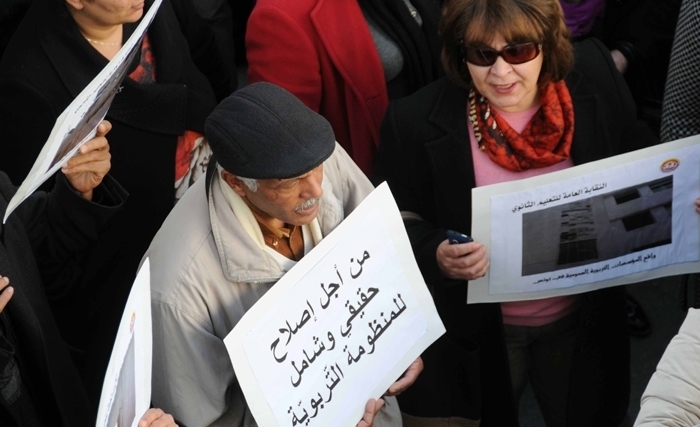 من أجل إصلاح
حقيقي وشامل
للمنظومة التّربويّة
النقابة العامة للتعليم الثانوي
واقع المؤسسات... التربوية العمومية في... تونس